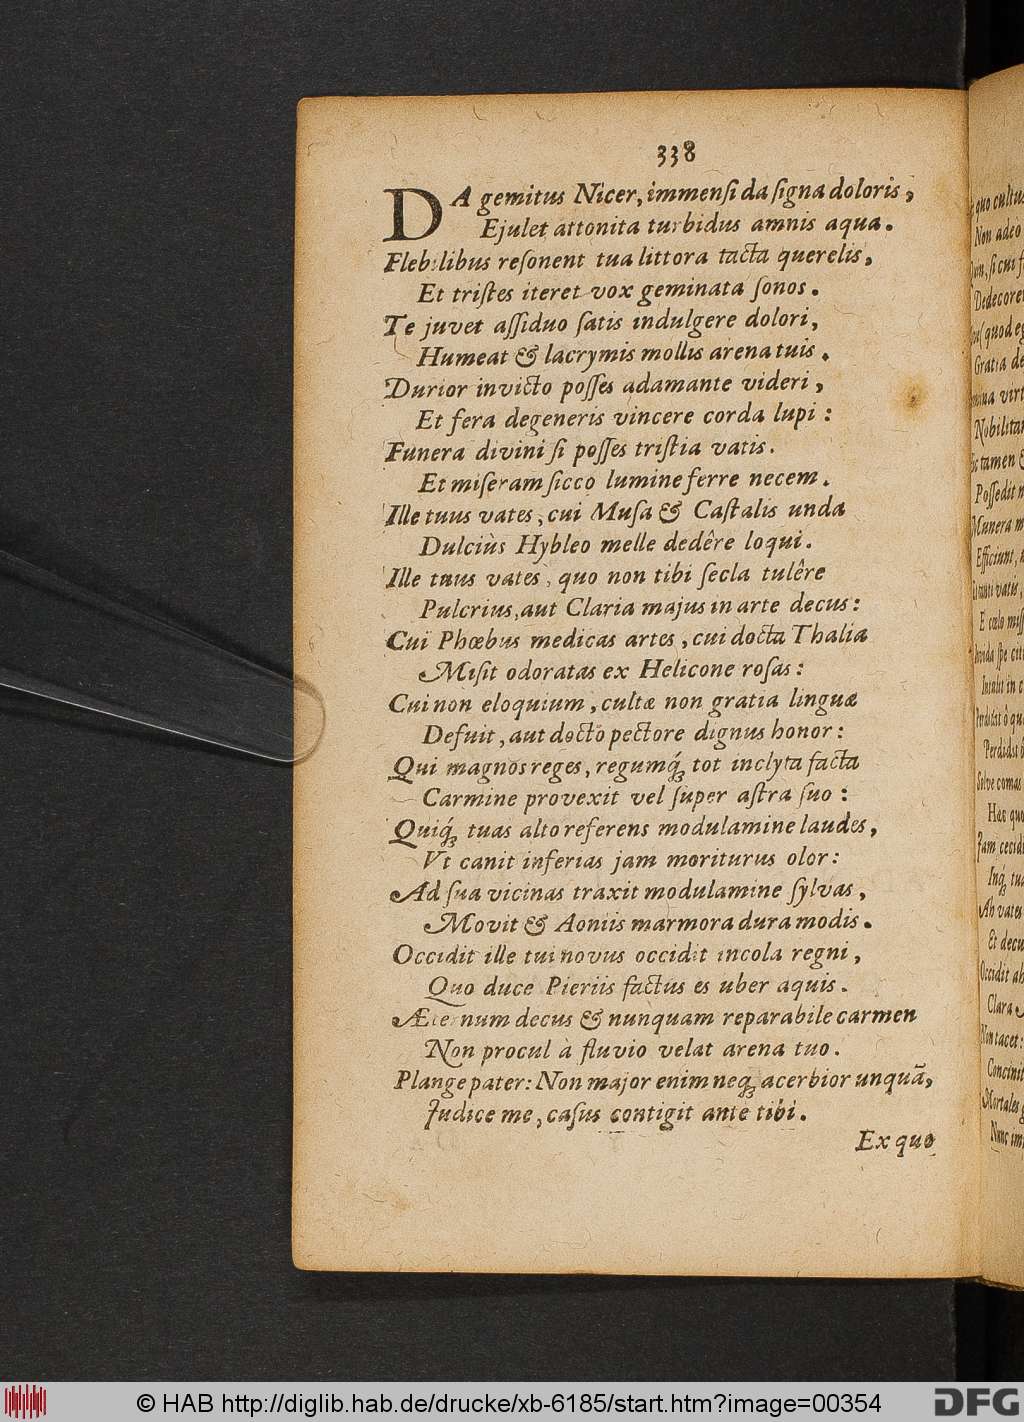 338
DA gemitus Nicer, immensi da signa doloris,
Ejulet attonita turbidus amnis aqua.
Flebilibus resonent tua littora tacta querelis,
Et tristes iteret vox geminata sonos.
Te juvet assiduo satis indulgere dolori,
Humeat & lacrymis mollis arena tuis.
Durior invicto posses adamante videri,
Et fera degeneris vincere corda lupi:
Funera divini si posses tristia vatis.
Et miseram sicco lumine ferre necem.
Ille tuus vates, cui Musa & Castalis unda
Dulciùs Hybleo melle dedêre loqui.
Ille tuus vates, quo non tibi secla tulêre
Pulcrius, aut Claria majus in arte decus:
Cui Phœbus medicas artes, cui docta Thalia
Misit odoratas ex Helicone rosas:
Cui non eloquium, cultæ non gratia linguæ
Defuit, aut docto pectore dignus honor:
Qui magnos reges, regumq́; tot inclyta facta
Carmine provexit vel super astra suo:
Quiq́; tuas alto referens modulamine laudes,
Vt canit inferias jam moriturus olor:
Ad sua vicinas traxit modulamine sylvas,
Movit & Aoniis marmora dura modis.
Occidit ille tui novus occidit incola regni,
Quo duce Pieriis factus es uber aquis.
Æternum decus & nunquam reparabile carmen
Non procul à fluvio velat arena tuo.
Plange pater: Non major enim neq; acerbior unquã,
Judice me, casus contigit ante tibi.
Ex quo
quo cultus
Non adeò
Dedecore
quod eg
Gratia de
virt
Nobilitan
tamen &
Possedit
Munera
Efficiunt,
vatis,
E cœlo
spe
in
Perdidit ô
Perdidit
Solve comas
Hac quo
Jam cecidi
Inq́; tua
Ah vates
Et decu
Occidit ah
Clara
Non tacet:
Concinit
Mortales
Nunc
© HAB http://diglib.hab.de/drucke/xb-6185/start.htm?image=00354
DFG